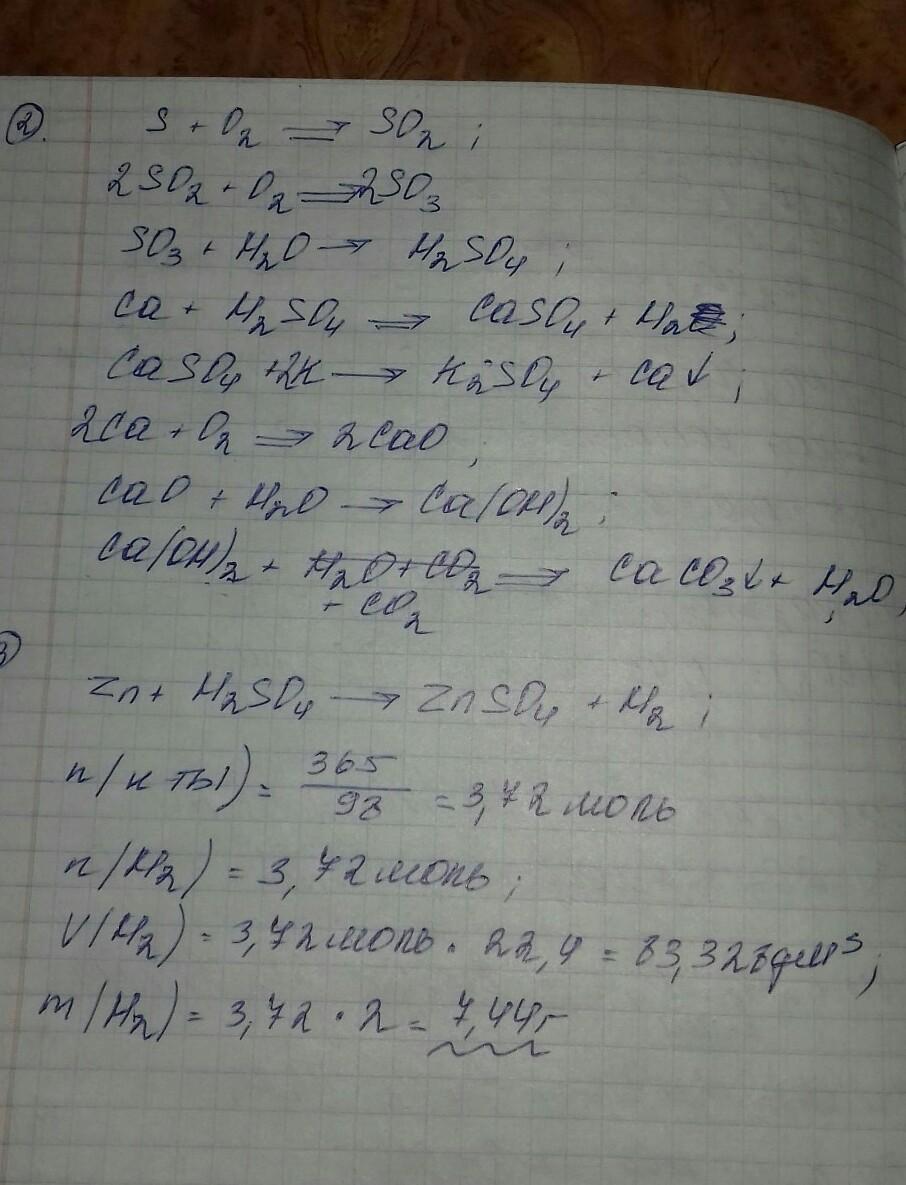 2. S + O2 ⇒ SO2 ;
2SO2 + O2 ⇒ 2SO3
SO3 + H2O → H2SO4 ;
Ca + H2SO4 ⇒ CaSO4 + H2 ;
CaSO4 + 2K → K2SO4 + Ca↓ ;
2Ca + O2 ⇒ 2CaO ;
CaO + H2O → Ca(OH)2 ;
Ca(OH)2 + H2O + CO2 ⇒ CaCO3↓ + H2O ;
+ CO2
3
Zn + H2SO4 → ZnSO4 + H2 ;
n(к-ты) = 365/98 = 3,72 моль
n(H2) = 3,72 моль ;
V(H2) = 3,72 моль · 22,4 = 83,328 дм³ ;
m(H2) = 3,72 · 2 = 7,44 г